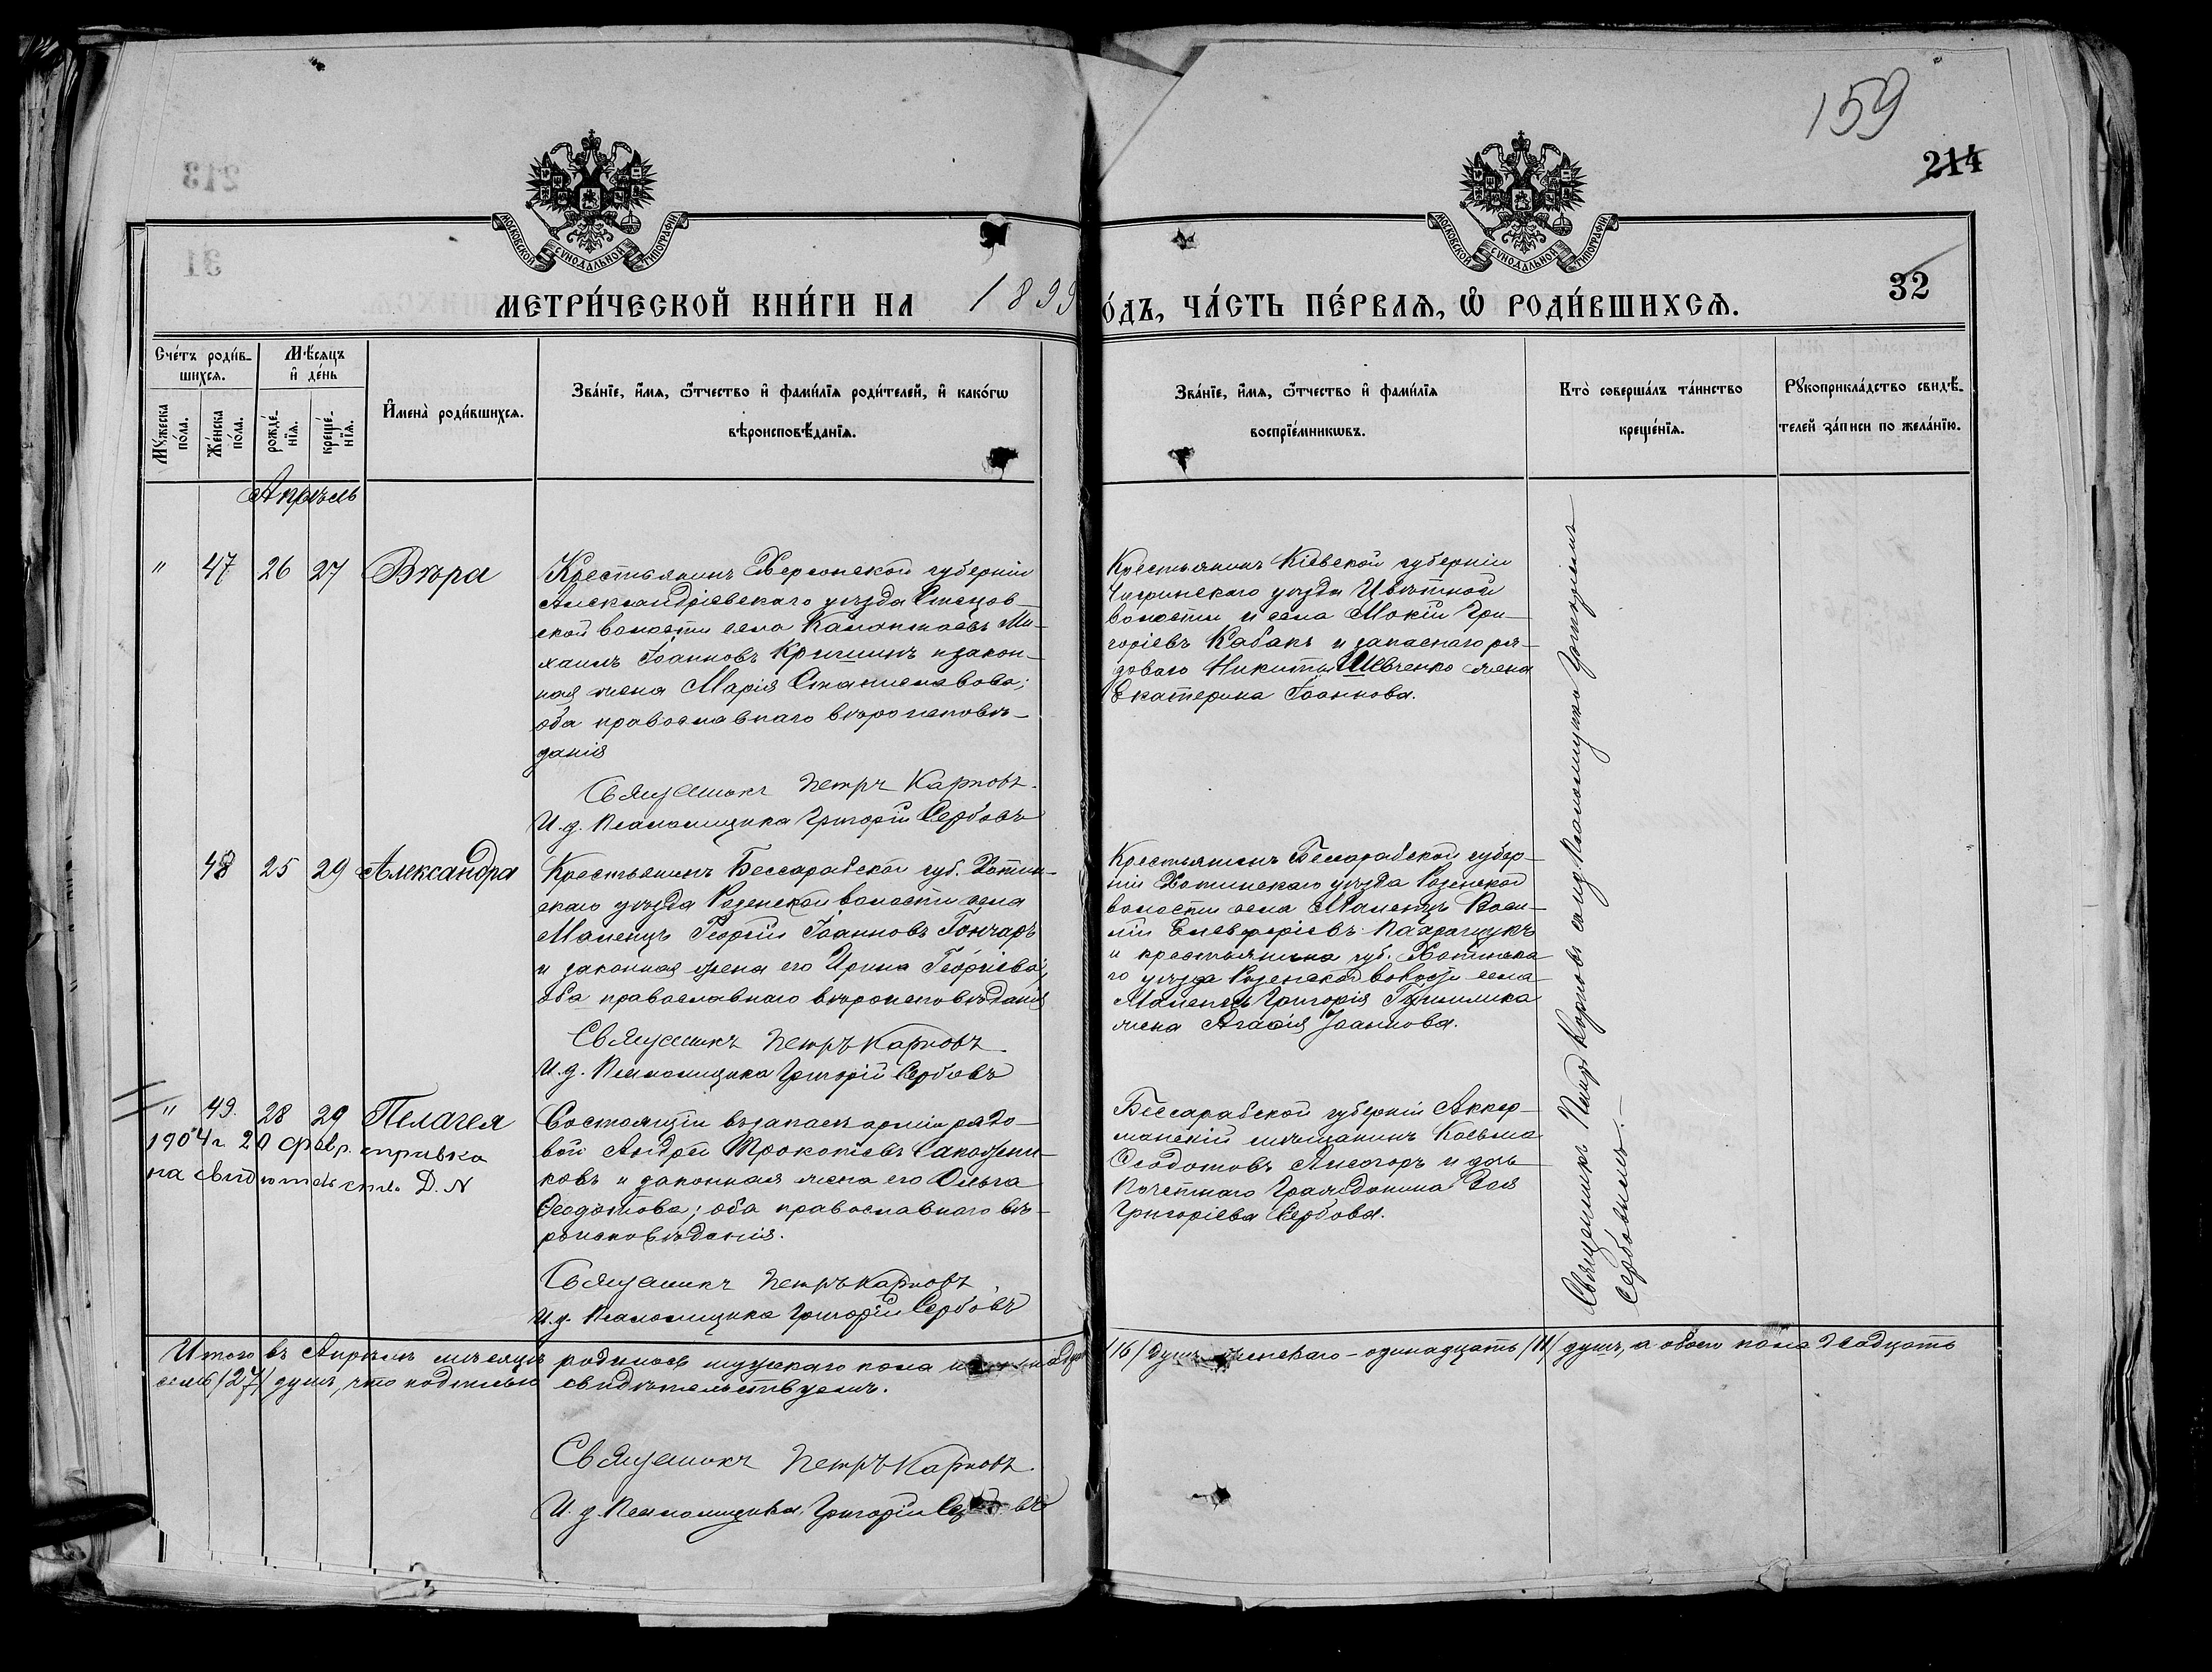 159
214
МОСКОВСКОЙ СУНОДАЛЬНОЙ ТИПОГРАФІИ
МОСКОВСКОЙ СУНОДАЛЬНОЙ ТИПОГРАФІИ
32
МЕТРИ́ЧЕСКОЙ КНИ́ГИ НА 1899
О́ДЪ, ЧА́СТЬ ПЕ́РВАЯ, Ѡ РОДИ́ВШИХСЯ.
Сче́тъ роди́в-
шихся.
Мѣ́сяцъ
и де́нь
Мꙋ́жеска
по́ла.
Же́нска
по́ла.
рожде́-
нїя.
креще́-
нїя.
Имена̀ роди́вшихся.
Зва́нїе, и́мя, ѻ́тчество и фами́лїя роди́телей, и како́гѡ
вѣроисповѣ́данїя.
Зва́нїе, и́мя, ѻ́тчество и фами́лїя
воспрїе́мникѡвъ.
Кто̀ соверша́лъ та́инство
креще́нїя.
Рꙋкоприкла́дство свидѣ́-
телей за́писи по жела́нїю.
Апрѣль
" 47 26 27 Вѣра
Крестьянинъ Херсонской губерніи
Александріевскаго уѣзда Стецов-
ской волости села Калантаевъ Ми-
хаилъ Іоанновъ Кришинъ и закон-
ная жена Марія Станиславова;
оба православнаго вѣроисповѣ-
данія
Священникъ Петръ Карповъ.
И. д. Псаломщика Григорій Сербовъ
Крестьянинъ Кіевской губерніи
Чигринскаго уѣзда Цвѣтной
волости и села Мокій Гри-
горіевъ Кабакъ и запаснаго ря-
доваго Никиты Шевченко жена
Екатерина Іоаннова.
48 25 29 Александра
Крестьянинъ Бессарабской губ. Хотин-
скаго уѣзда Розенской волости села
Маленцъ Георгій Іоанновъ Гончаръ
и законная жена его Ирина Георгіева;
оба православнаго вѣроисповѣданія
Священникъ Петръ Карповъ.
И. д. Псаломщика Григорій Сербовъ
Крестьянинъ Бессарабской губер-
ніи Хотинскаго уѣзда Розенской
волости села Маленцъ Васи-
лій Елевферіевъ
и крестьянина губ. Хотинска-
го уѣзда Розенской волости села
Маленцъ Григорія
жена Агафія Іоаннова.
" 49. 28 29 Пелагея
1904 г. 20 февр. справка
на свидѣтельство Д. N
Состоящій въ запасѣ арміи рядо-
вой Андрей Прокопіевъ Сапожни-
ковъ и законная жена его Ольга
Ѳеодотова; оба православнаго вѣ-
роисповѣданія.
Священникъ Петръ Карповъ
И. д. Псаломщика Григорій Сербовъ
Бессарабской губерніи Аккер-
манскій мѣщанинъ Косьма
Ѳеодотовъ и дочь
Почетнаго Гражданина Зоя
Григоріева Сербова.
Священникъ Петръ Карповъ съ и. д. Псаломщика Григоріемъ
Сербовымъ.
Итого въ Апрѣлѣ мѣсяцѣ родилось мужскаго пола /16/ душъ, женскаго – одинадцать /11/ душъ, а обоего пола двадцать
семь /27/ душъ, что подписью свидѣтельствуемъ.
Священникъ Петръ Карповъ.
И. д. Псаломщика, Григорій Сербовъ